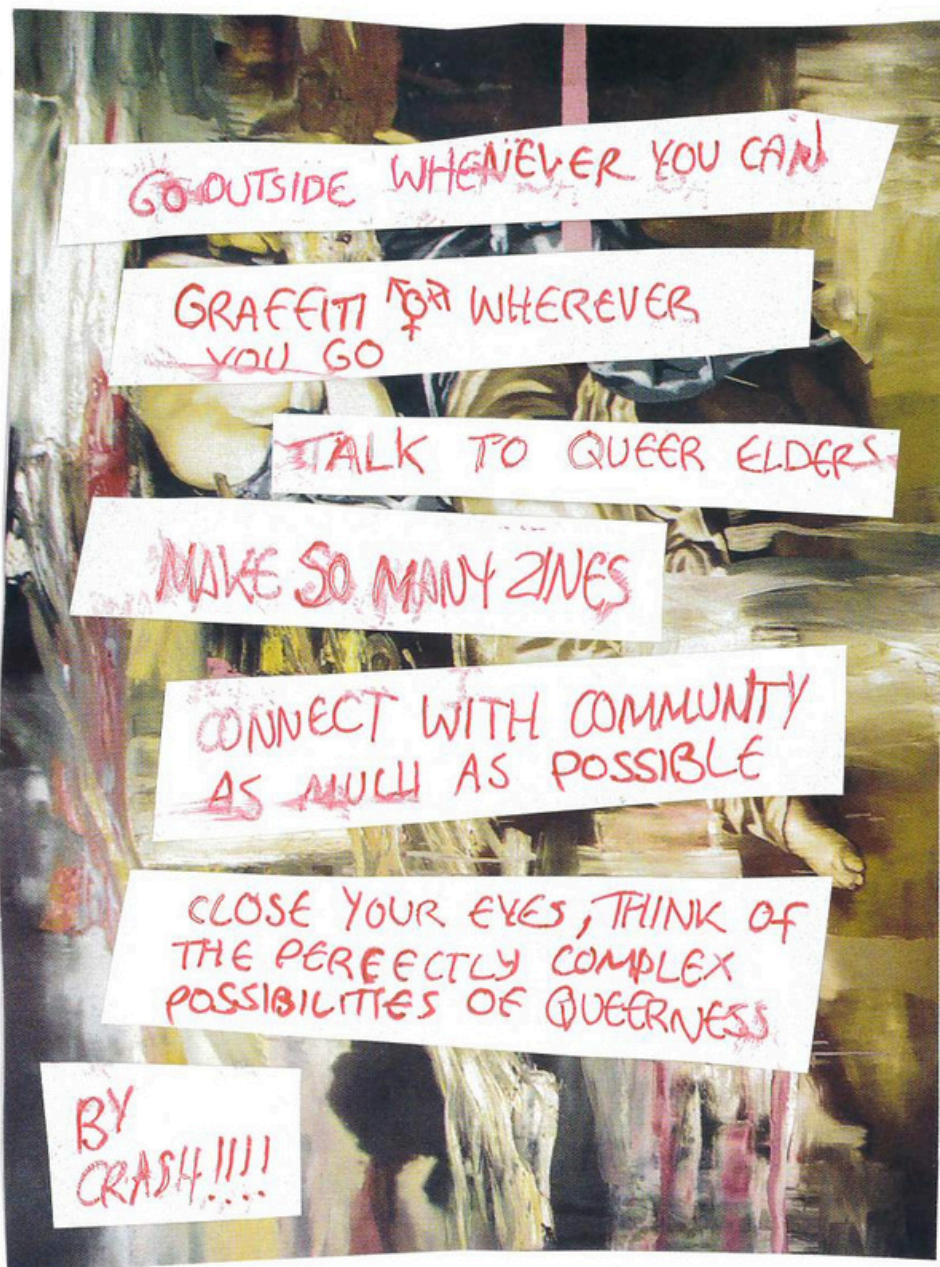 GO OUTSIDE WHENEVER YOU CAN
GRAFFITI ⚧ WHEREVER
YOU GO
TALK TO QUEER ELDERS
MAKE SO MANY ZINES
CONNECT WITH COMMUNITY
AS MUCH AS POSSIBLE
CLOSE YOUR EYES, THINK OF
THE PERFECTLY COMPLEX
POSSIBILITIES OF QUEERNESS
BY
CRASH!!!!